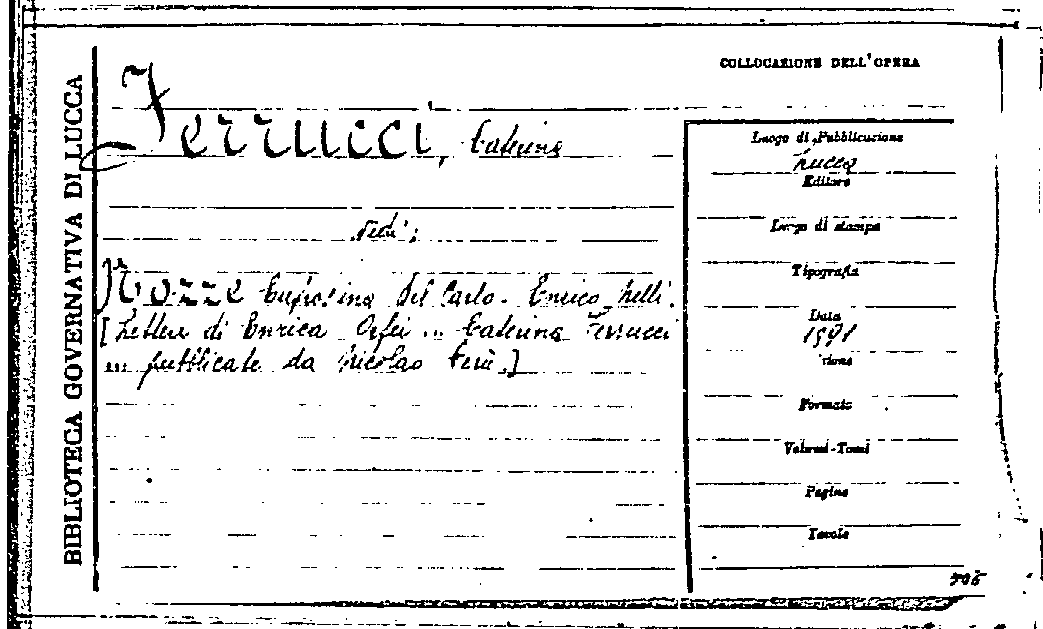 BIBLIOTECA GOVERNATIVA DI LUCCA
COLLOCAZIONE DELL'OPERA
Ferrucci, Caterina
Vedi:
Nozze Eufrosina Del Carlo - Enrico Nelli.
[Lettere di Enrica Orfei ... Caterina Ferrucci
... pubblicate da Nicolao
Luogo di Pubblicazione
Lucca
Editore
Luogo di stampa
Tipografia
Data
Formato
Volumi-Tomi
Pagine
Tavole